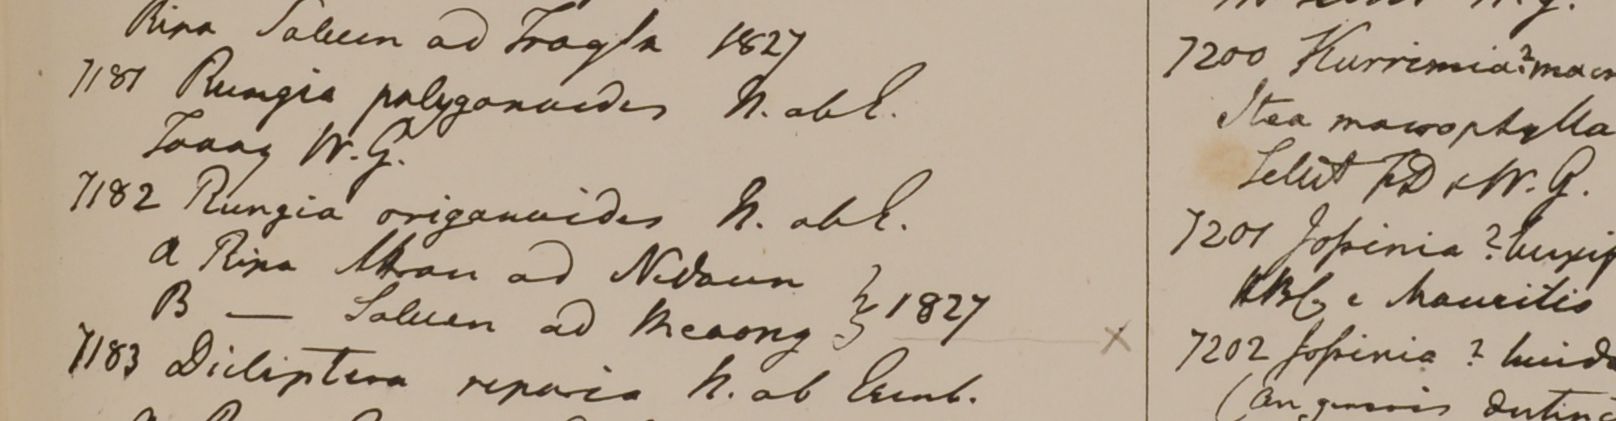 Ripa Saluen ad Trogla 1827
7181 Rungia polygonoides N. ab E.
Tavoy W. G.
7182 Rungia origanoides N. ab E.
a Ripa Attran ad Nidaun
B — Saluen ad Meaong } 1827
7183 Dicliptera riparia N. ab Esenb.
W. G.
7200 Kurrimia?
Itea macrophylla
Silhet FD & W. G.
7201 Jossinia ?
HBC e Mauritis
7202 Jossinia ?
(An generis